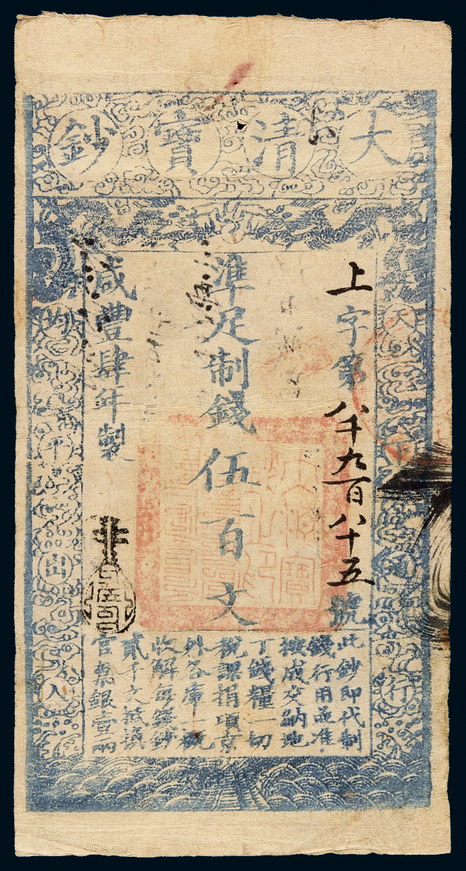 大清寶鈔
天下通行
上字第八千九百八十五號
準足制錢伍百文
咸豐肆年製
均平出入
此鈔即代制
錢行用並准
按成交納地
丁錢糧一切
稅課捐項京
外各庫一概
收解每錢鈔
貳千文抵換
官票銀壹兩